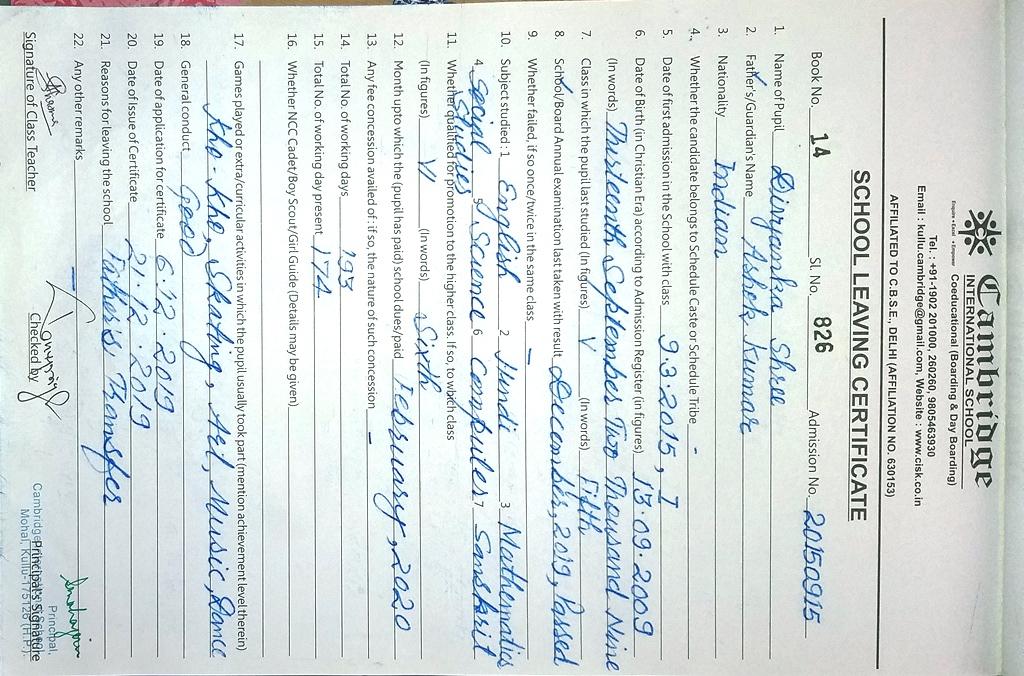 Cambridge
INTERNATIONAL SCHOOL
Enquire • Excel • Empower
Coeducational (Boarding & Day Boarding)
Tel. : +91-1902 201000, 260260, 9805463930
Email : kullu.cambridge@gmail.com, Website : www.cisk.co.in
AFFILIATED TO C.B.S.E., DELHI (AFFILIATION NO. 630153)
SCHOOL LEAVING CERTIFICATE
Book No. 14 Sl. No. 826 Admission No. 20150915
1. Name of Pupil Divyanka Shree
2. Father's/Guardian's Name Ashok Kumar
3. Nationality Indian
4. Whether the candidate belongs to Schedule Caste or Schedule Tribe -
5. Date of first admission in the School with class 9.3.2015, I
6. Date of Birth (in Christian Era) according to Admission Register (in figures) 13.09.2009
(In words) Thirteenth September Two Thousand Nine
7. Class in which the pupil last studied (In figures) V (In words) Fifth
8. School/Board Annual examination last taken with result December, 2019, Passed
9. Whether failed, if so once/twice in the same class -
10. Subject studied : 1 English 2 Hindi 3 Mathematics
4 Social Studies 5 Science 6 Computer 7 Sanskrit
11. Whether qualified for promotion to the higher class. If so, to which class
(In figures) VI (In words) Sixth
12. Month upto which the (pupil has paid) school dues/paid February, 2020
13. Any fee concession availed of : if so, the nature of such concession -
14. Total No. of working days 193
15. Total No. of working day present 174
16. Whether NCC Cadet/Boy Scout/Girl Guide (Details may be given)
17. Games played or extra/curricular activities in which the pupil usually took part (mention achievement level therein)
Kho-Kho, Skating, Art, Music, Dance
18. General conduct Good
19. Date of application for certificate 6.12.2019
20. Date of issue of Certificate 21.12.2019
21. Reasons for leaving the school Father's Transfer
22. Any other remarks -
Signature of Class Teacher Checked by Principal's Signature
Principal,
Cambridge International School
Mohal, Kullu-175126 (H.P.)